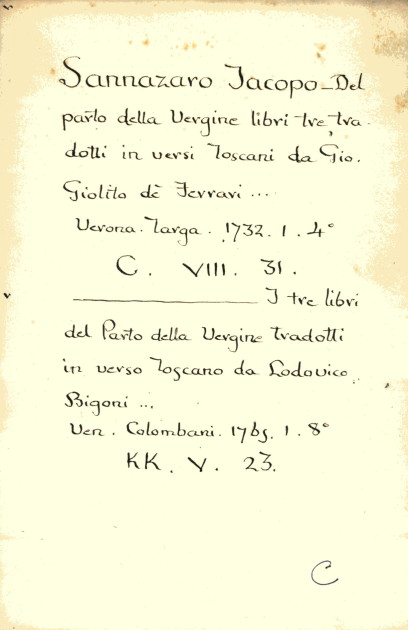 Sannazaro Iacopo - Del
parto della Vergine libri tre, tra-
dotti in versi Toscani da Gio.
Giolito de' Ferrari ...
Verona. Targa. 1732. 1. 4°
C. VIII. 31.
———————— I tre libri
del Parto della Vergine tradotti
in verso Toscano da Lodovico
Bigoni ...
Ven. Colombani. 1765. 1. 8°
KK. V. 23.
C